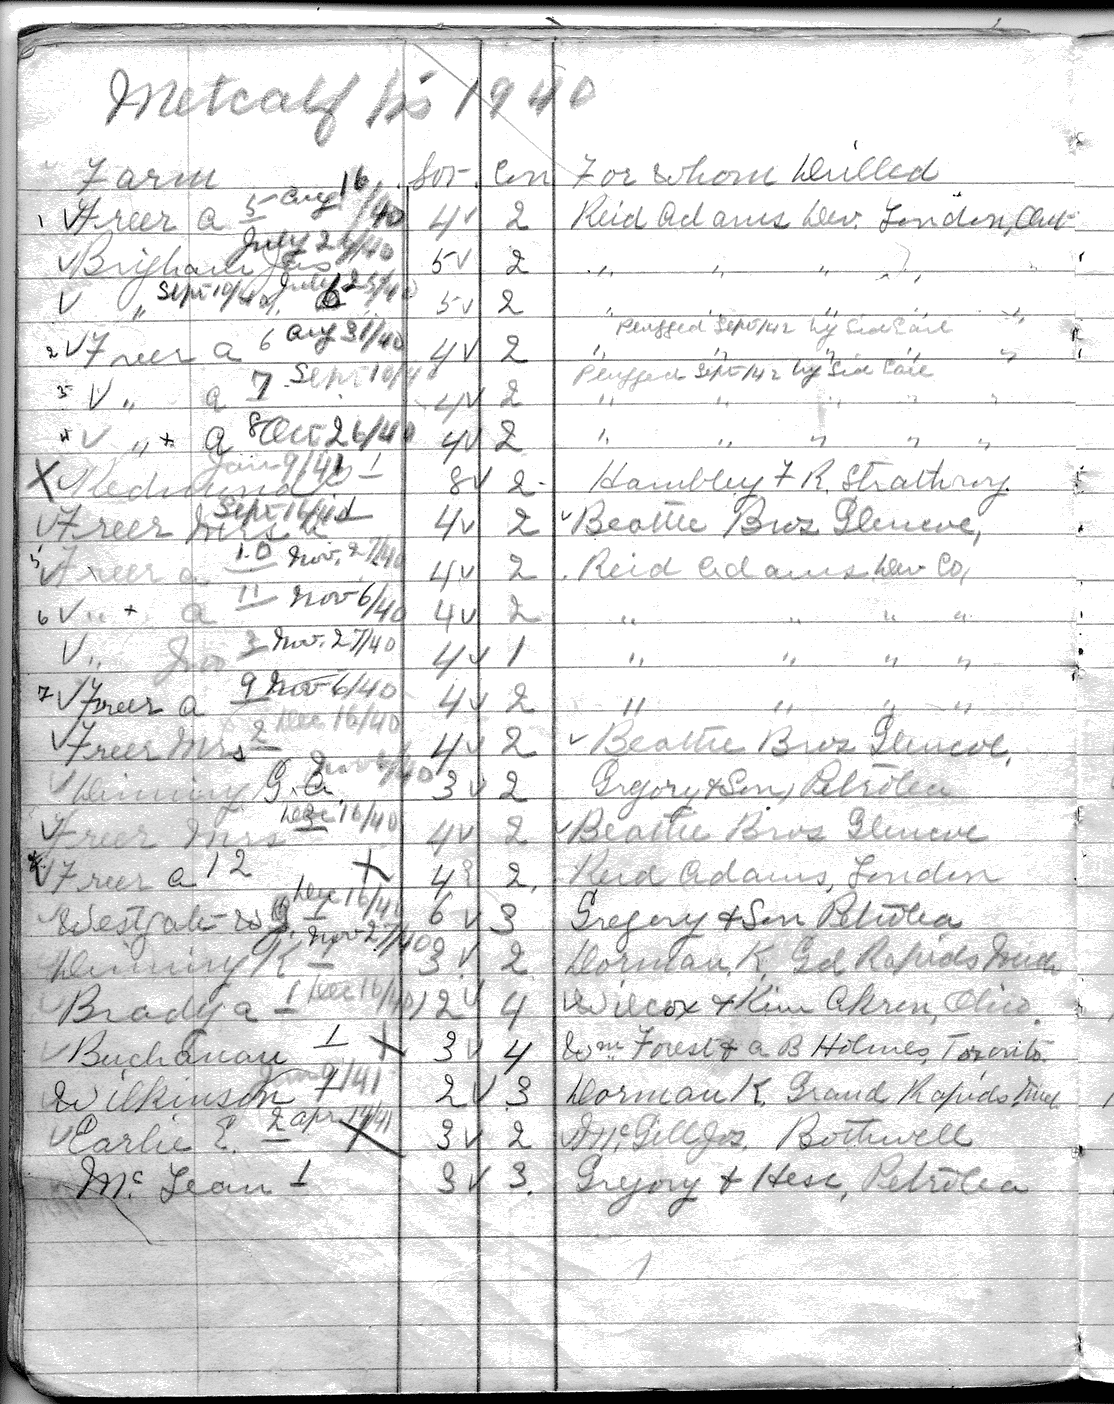 Metcalf 1940
Farm Lot Con For Whom Drilled
1 ✓ Freer A 5 Aug 16/40 4 ✓ 2 Reid Adams Dev. London, Ont
✓ Brigham Jas July 26/40 5 ✓ 2 " " " " "
✓ " Sept 10/40 July 25/40 6 5 ✓ 2 " " " " "
Plugged Sept/42 by Sid Carl
2 ✓ Freer A 6 Aug 31/40 4 ✓ 2 " " " " "
Plugged Sept/42 by Sid Carl
3 ✓ " A 7 Sept 10/40 4 ✓ 2 " " " " "
4 ✓ " + A 8 Oct 26/40 4 ✓ 2 " " " " "
X ✓ Redmond Jan 9/41 1 8 ✓ 2 Hambley F R. Strathroy
✓ Freer Mrs Sept 16/41 4 ✓ 2 ✓ Beattie Bros Glencoe,
5 ✓ Freer A 10 Nov. 27/40 4 ✓ 2 Reid Adams Dev Co,
6 ✓ " + A 11 Nov 6/40 4 ✓ 2 " " " "
✓ " 3 Nov. 27/40 4 ✓ 1 " " " "
7 ✓ Freer A 9 Nov 6/40 4 ✓ 2 " " " "
✓ Freer Mrs 2 Dec 16/40 4 ✓ 2 ✓ Beattie Bros Glencoe,
✓ G. A. Nov /40 3 ✓ 2 Grgory & Son, Petrolea
✓ Freer Mrs 3 Dec 16/40 4 ✓ 2 ✓ Beattie Bros Glencoe
✓ Freer A 12 X 4 2. Reid Adams, London
✓ Westgate W G. 1 Dec 16/40 6 ✓ 3 Gregory & Son Petrolea
K 1 Nov 27/40 3 ✓ 2 Dorman K. Gd Rapids Mich
✓ Brady A 1 Dec 16/40 12 ✓ 4 Wilcox & Kim Akron, Ohio.
✓ Buchanan 1 X 3 ✓ 4 Wm Forest & A B Holmes, Toronto
Wilkinson 9/41 2 ✓ 3 Dorman K. Grand Rapids Mich
✓ Earlie E. 2 Apr 19/41 X 3 ✓ 2 ✓ McGill Jos. Bothwell
Mc Lean 1 3 ✓ 3. Gregory & Hess, Petrolea